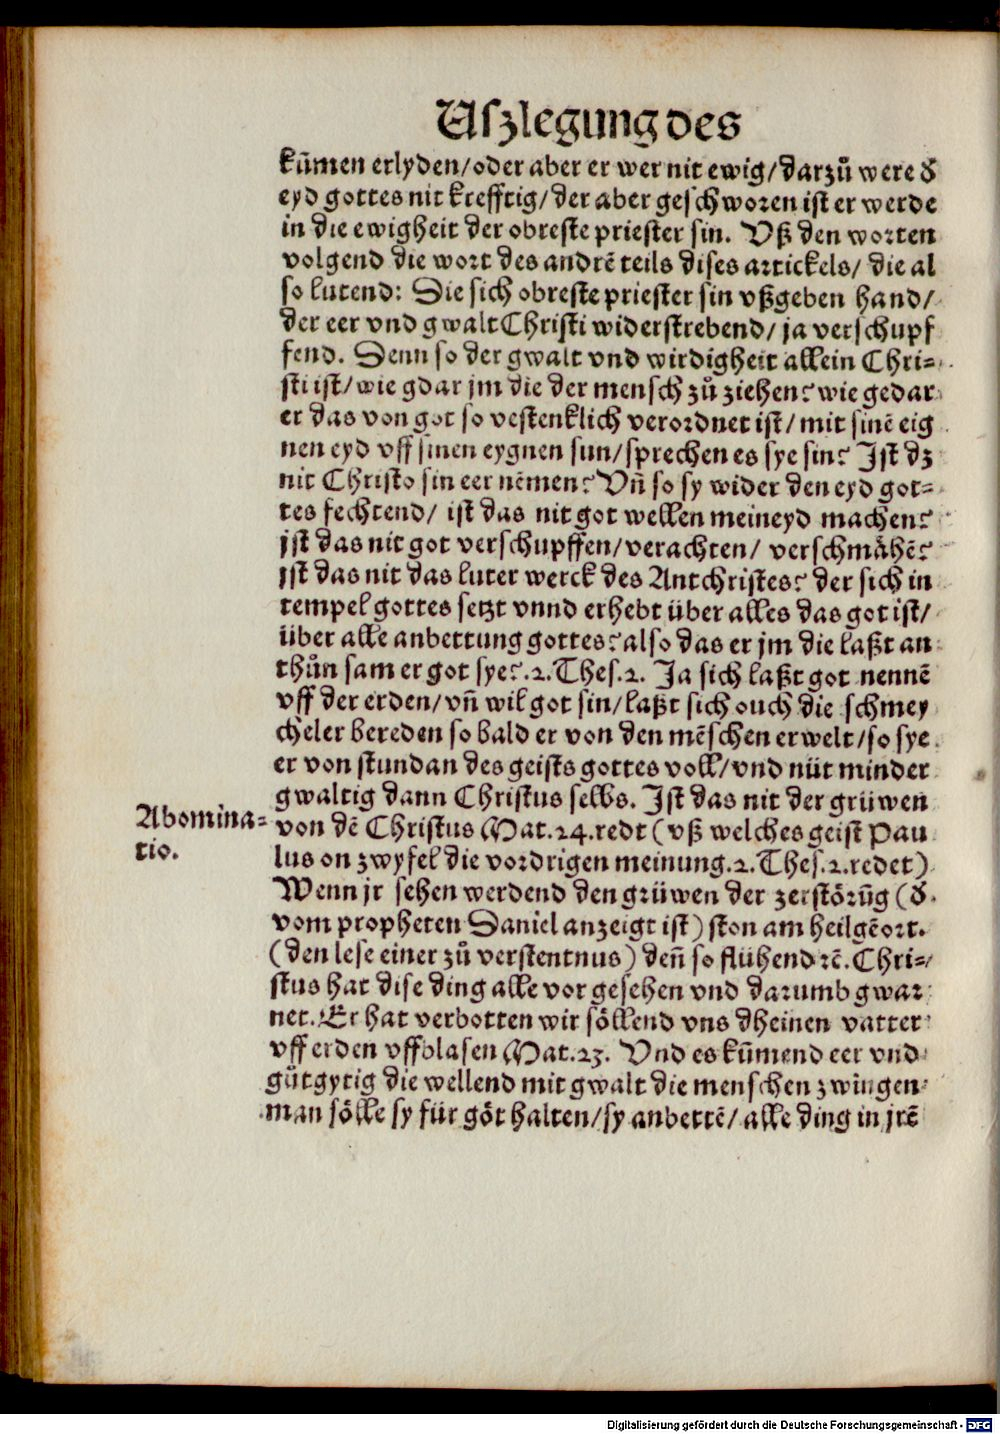 Uſzlegung des
kūmen erlyden/oder aber er wer nit ewig/darzů were d̕
eyd gottes nit krefftig/der aber geſchworen iſt er werde
in die ewigheit der obreſte prieſter ſin. Vß den worten
volgend die wort des andrē teils diſes artickels/ die al
ſo lutend: Die ſich obreſte prieſter ſin vßgeben hand/
der eer vnd gwalt Chriſti widerſtrebend/ ja verſchupf
fend. Denn ſo der gwalt vnd wirdigheit allein Chri⸗
ſti iſt/wie gdar jm die der menſch zů ziehen? wie gedar
er das von got ſo veſtenklich verordnet iſt/ mit ſinē eig
nen eyd vff ſinen eygnen ſun/ſprechen es ſye ſin? Iſt dz
nit Chriſto ſin eer nēmen? Vn̄ ſo ſy wider den eyd got⸗
tes fechtend/ iſt das nit got wellen meineyd machen?
jſt das nit got verſchupffen/verachten/ verſchmåhē?
jſt das nit das luter werck des Antchriſtes? der ſich in
tempel gottes ſetzt vnnd erhebt über alles das got iſt/
über alle anbettung gottes? alſo das er jm die laßt an
thůn ſam er got ſye? .2. Theſ.2. Ja ſich laßt got nennē
vff der erden/vn̄ wil got ſin/laßt ſich ouch die ſchmey
cheler bereden ſo bald er von den mēſchen erwelt/ſo ſye
er von ſtundan des geiſts gottes voll/vnd nüt minder
gwaltig dann Chriſtus ſelbs. Iſt das nit der grüwen
Abomina⸗
tio.
von dē Chriſtus Mat.24.redt (vß welches geiſt Pau
lus on zwyfel die vordrigen meinung.2. Theſ.2.redet)
Wenn jr ſehen werdend den grüwen der zerſtörūg (d̕
vom propheten Daniel anzeigt iſt) ſton am heilgē ort.
(den leſe einer zů verſtentnus) den̄ ſo flühend ꝛē. Chri⸗
ſtus hat diſe ding alle vor geſehen vnd darumb gwar
net. Er hat verbotten wir ſöllend vns dheinen vatter
vff erden vffblaſen Mat.23. Vnd es kūmend eer vnd
gůtgytig die wellend mit gwalt die menſchen zwingen
man ſölle ſy für göt halten/ſy anbettē/ alle ding in jrē
Digitalisierung gefördert durch die Deutsche Forschungsgemeinschaft - DFG